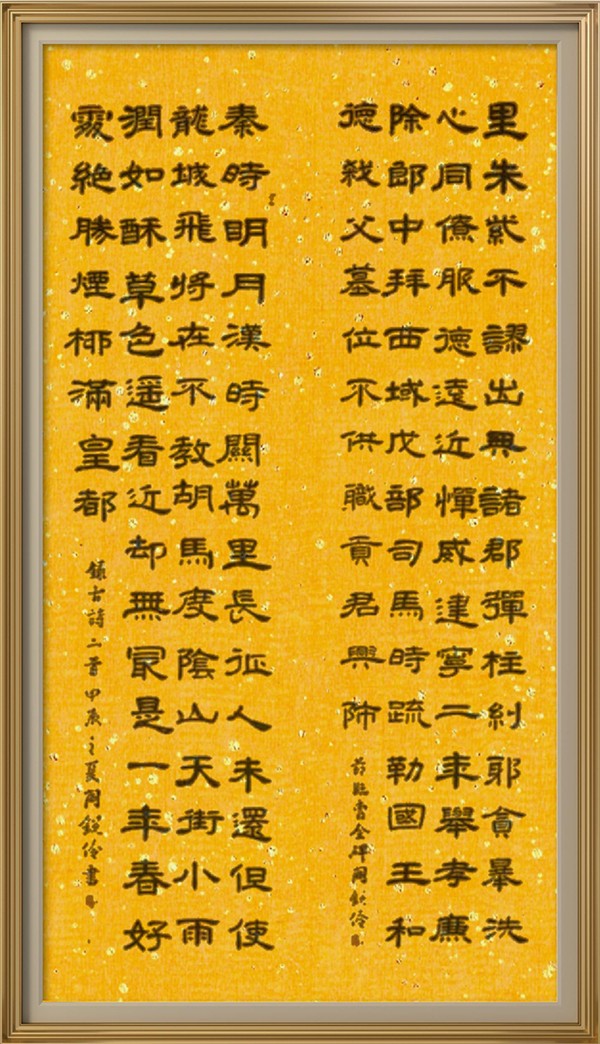 里朱紫不謬出典諸郡彈枉糾邪貪暴洗
心同僚服德遠近憚威建寧二年舉孝廉
除郎中拜西域戊部司馬時疏勒國王和
德弒父篡位不供職貢君興師
節臨曹全碑周伶
秦時明月漢時關萬里長征人未還但使
龍城飛將在不教胡馬度陰山天街小雨
潤如酥草色遙看近却無最是一年春好
處絕勝煙柳滿皇都
錄古詩二首甲辰之夏周伶書